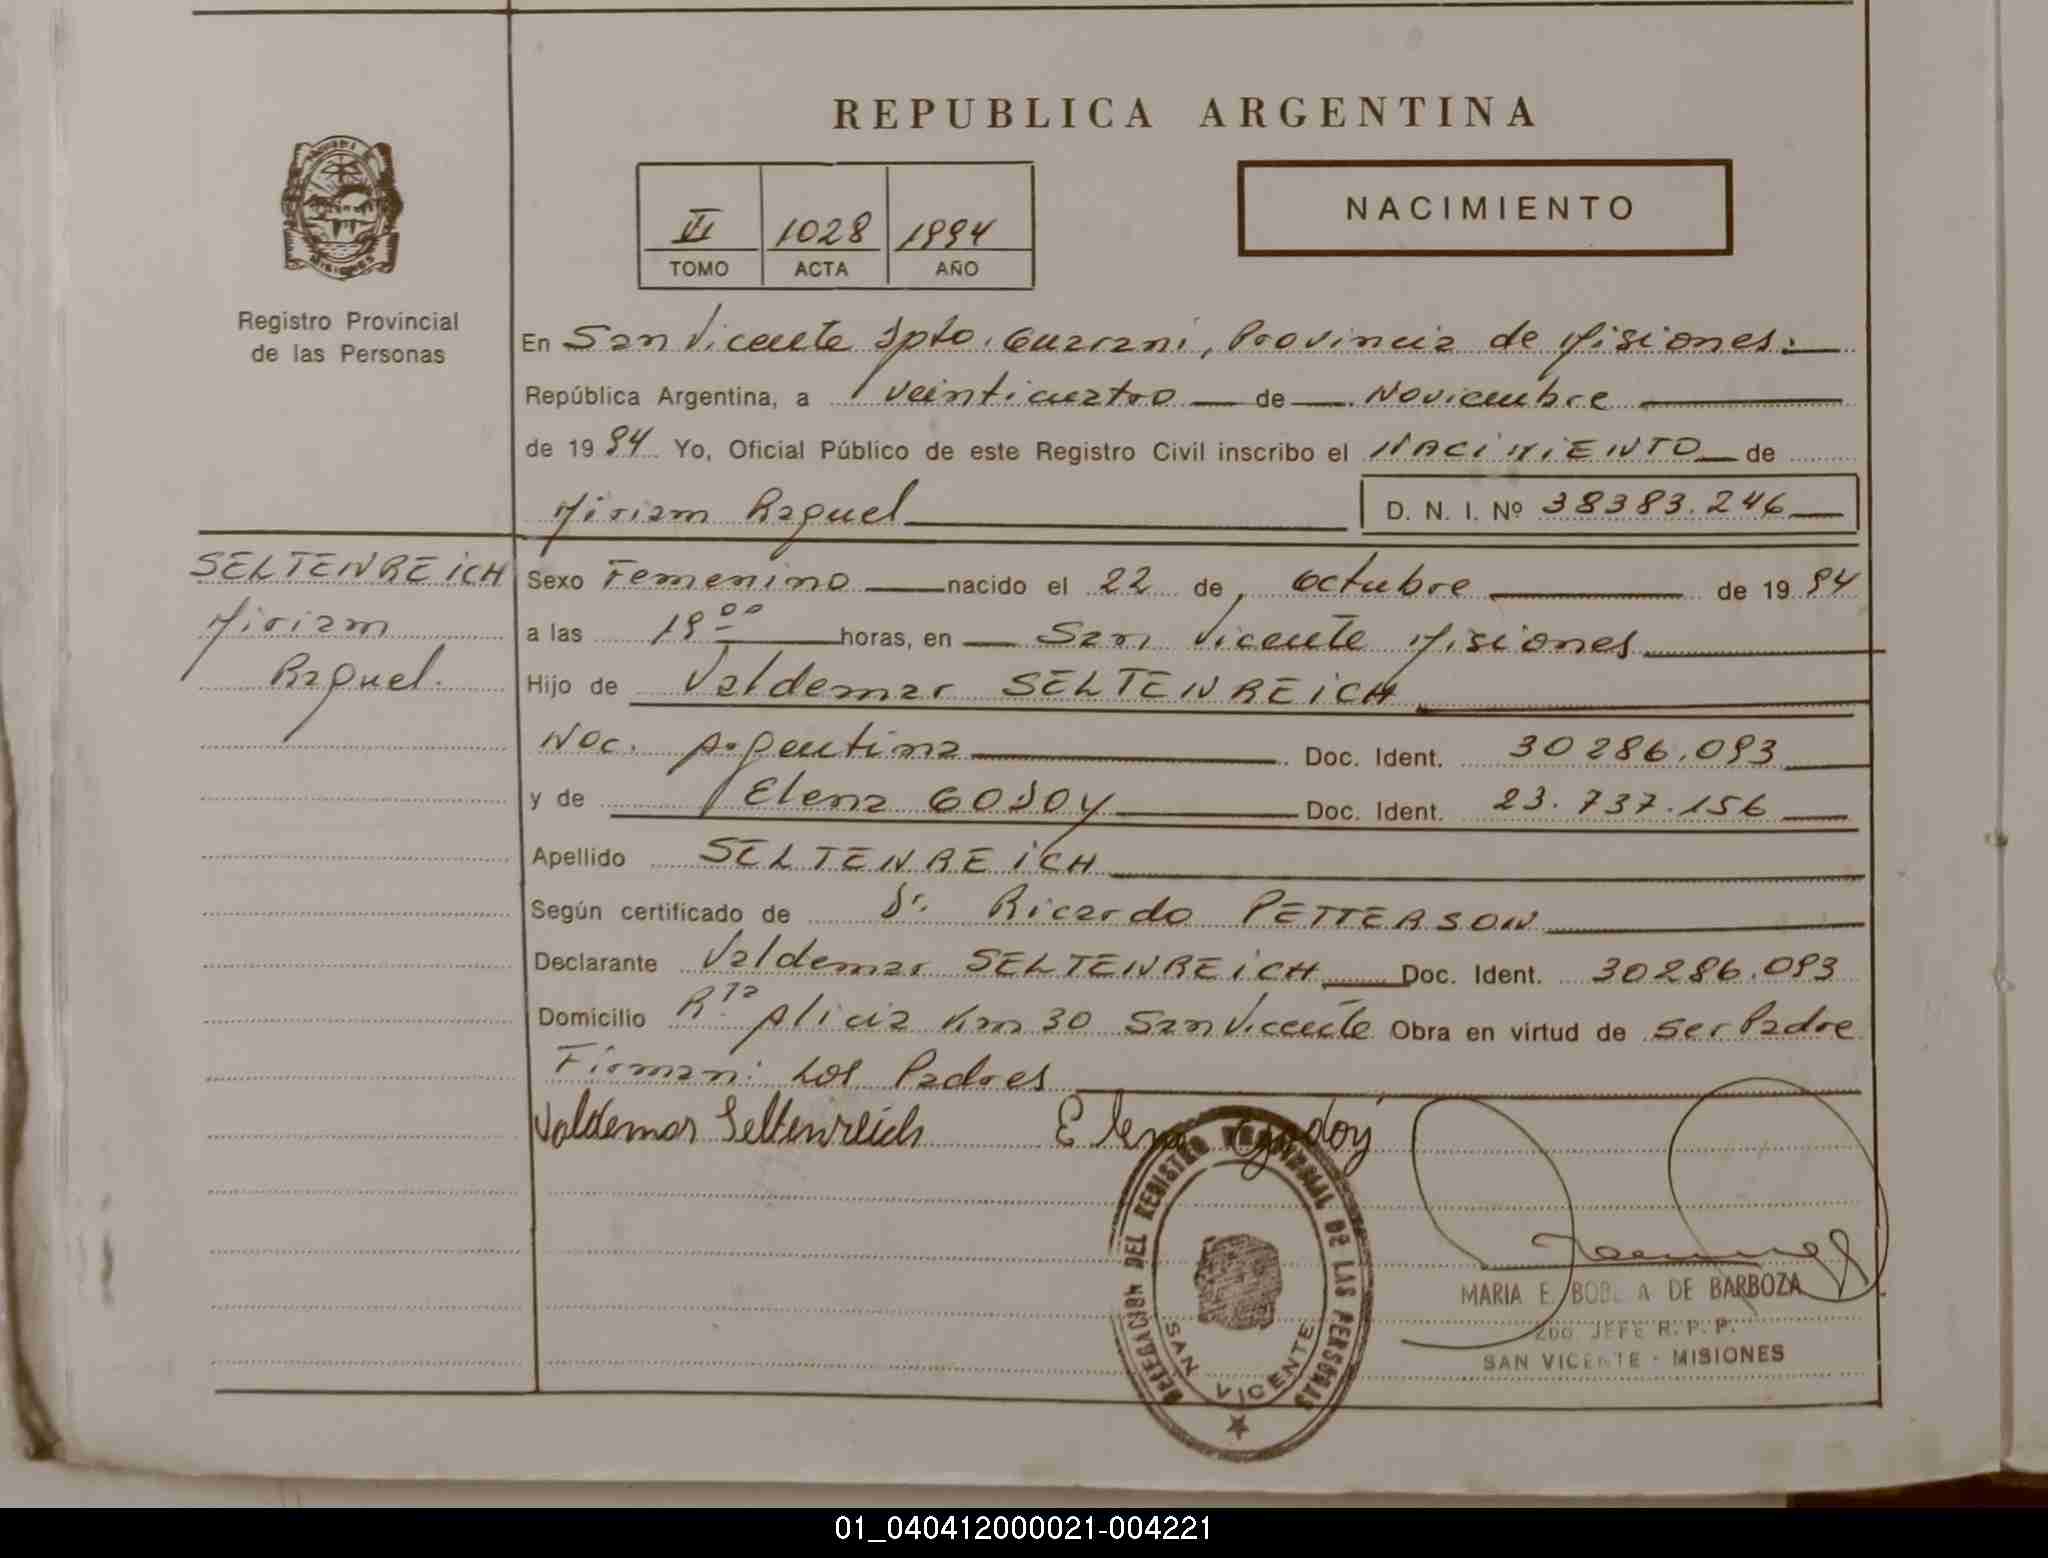 REPUBLICA ARGENTINA
NACIMIENTO
VI 1028 1994
TOMO ACTA AÑO
MISIONES
Registro Provincial
de las Personas
En San Vicente Dpto. Guarani, Provincia de Misiones.
República Argentina, a veinticuatro de Noviembre
de 1994 Yo, Oficial Público de este Registro Civil inscribo el NACIMIENTO de
Miriam Raquel D. N. I. Nº 38383.246
SELTENREICH
Miriam
Raquel.
Sexo Femenino nacido el 22 de octubre de 1994
a las 19 00 horas, en San Vicente Misiones
Hijo de Valdemar SELTENREICH
Nac. Argentina Doc. Ident. 30286.093
y de Elena GODOY Doc. Ident. 23.737.156
Apellido SELTENREICH
Según certificado de Dr. Ricardo PETTERSON
Declarante Valdemar SELTENREICH Doc. Ident. 30286.093
Domicilio Rta Alicia Km 30 San Vicente Obra en virtud de ser Padre
Firman: Los Padres
Valdemar Seltenreich Elena Godoy
DELEGACION DEL REGISTRO PROVINCIAL DE LAS PERSONAS
SAN VICENTE
MARIA E. DE BARBOZA
2do JEFE R. P. P.
SAN VICENTE - MISIONES
01_040412000021-004221